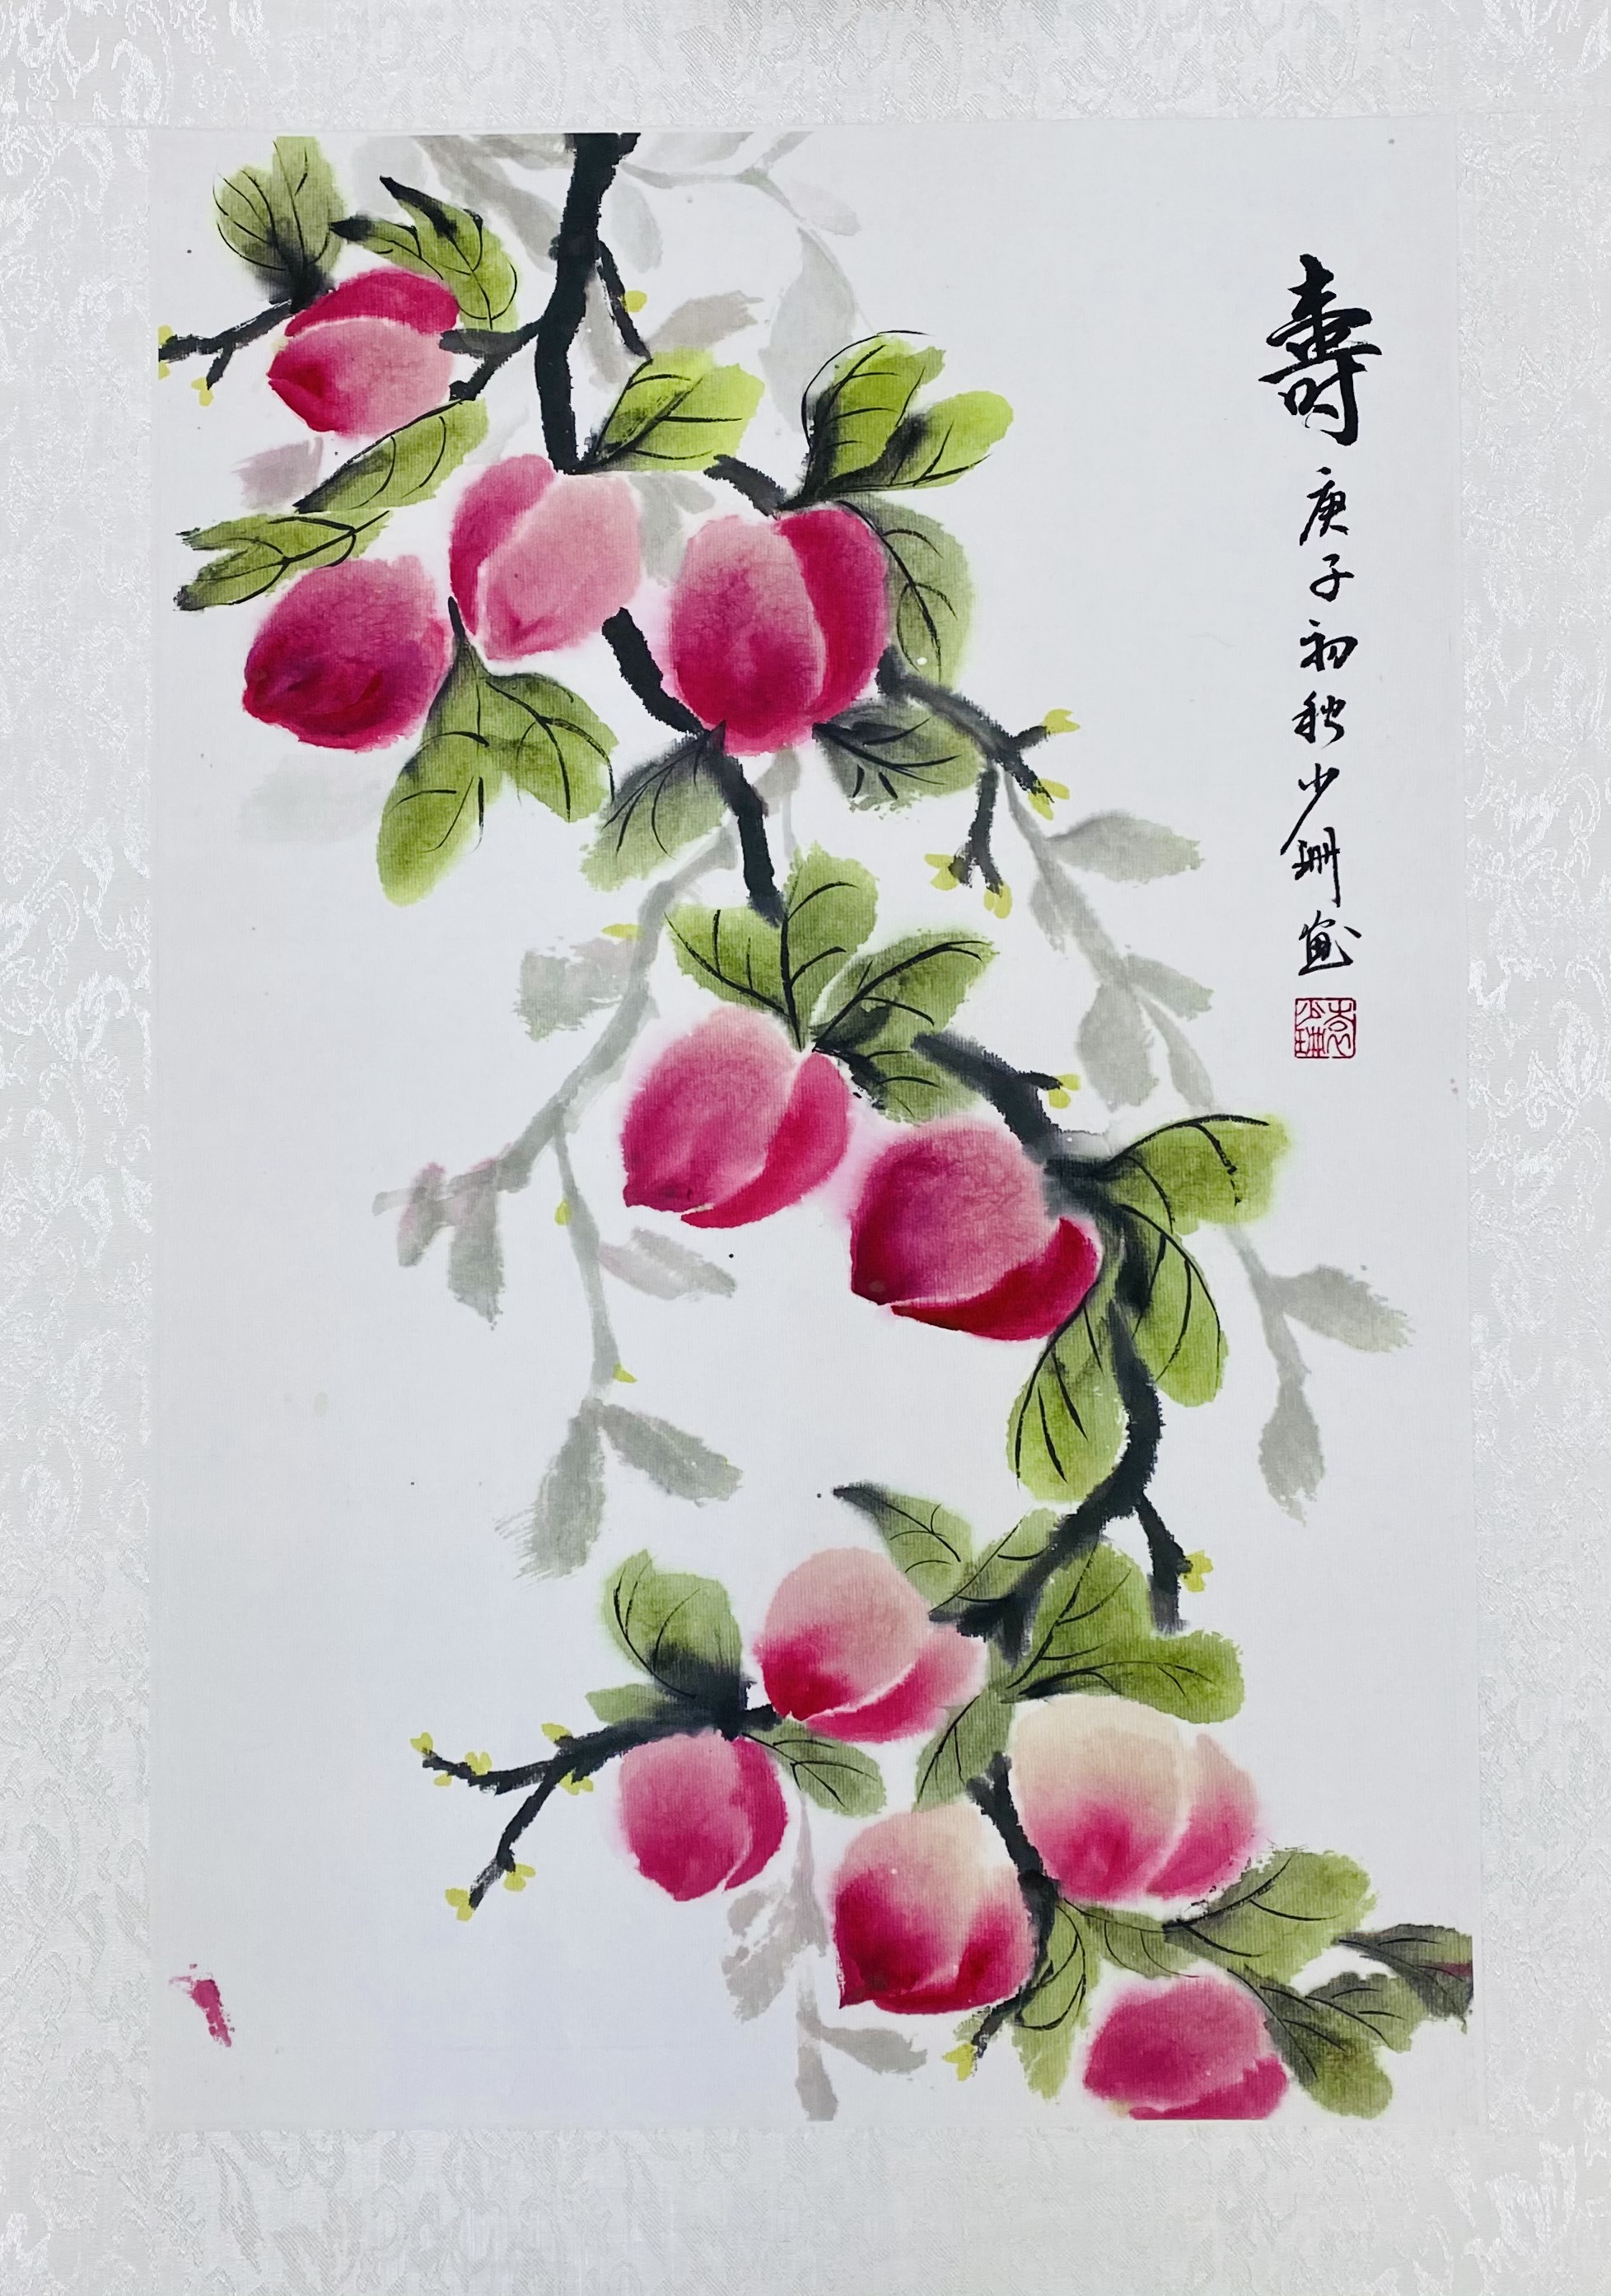 壽
庚子初秋少珊畫